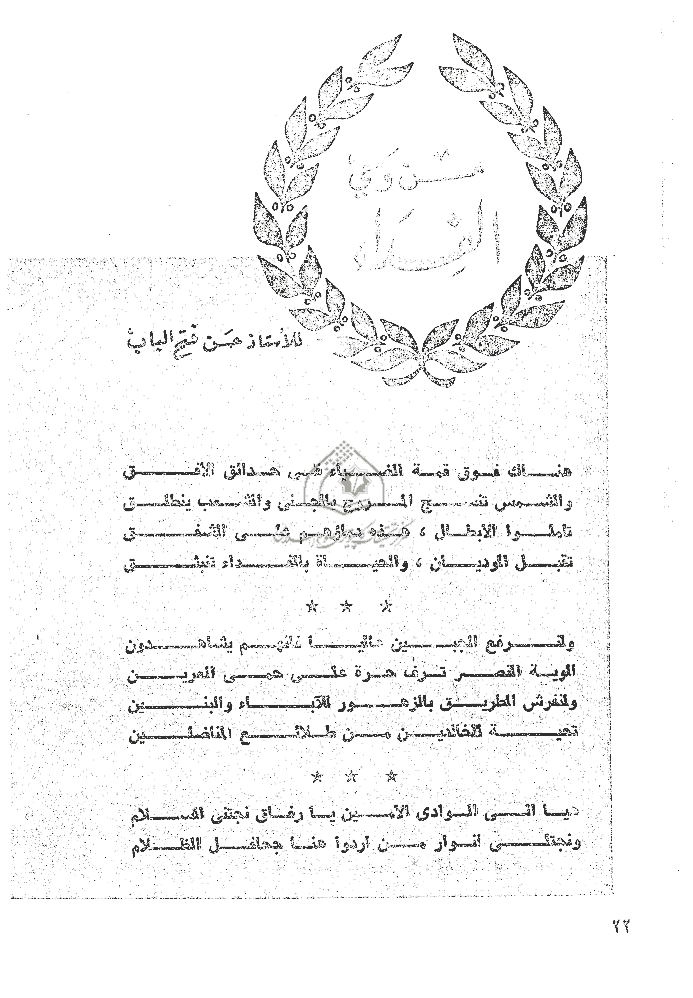 من وحي
الفداء
للأستاذ حسن فتح الباب
هناك فوق قمة الضياء في حدائق الافق
والشمس تنسج المروج بالجنى والشعب ينطلق
تأملوا الابطال ، هذه دماؤهم على الشفق
تقبل الوديان ، والحياة بالفداء تنبثق
☆ ☆ ☆
ولنرفع الجبين عاليا فانهم يشاهدون
الوية النصر ترف حرة على حمى العرين
ولنفرش الطريق بالزهور للآباء والبنين
تحية للخالدين من طلائع المناضلين
☆ ☆ ☆
هيا الى الوادى الامين يا رفاق نجتنى السلام
ونجتلى انوار من اردوا هنا جحافل الظلام
٢٢